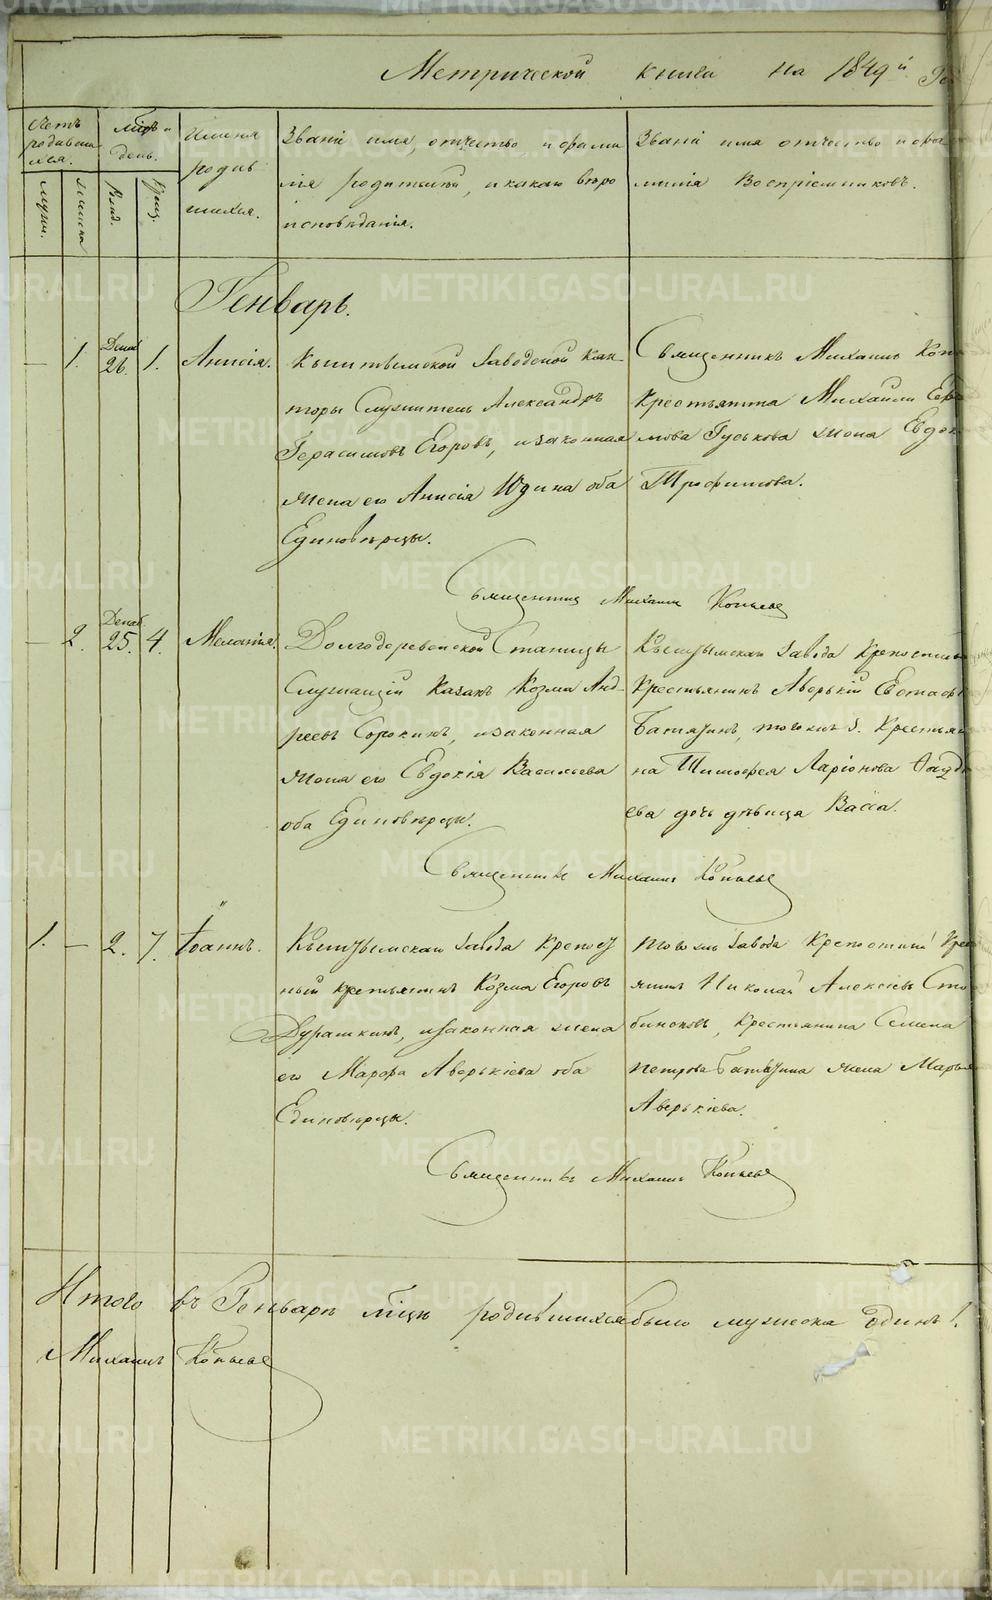 Метрической книги на 1849й
Счетъ родившихся.
Мцъ и день.
Имена родившихся.
Званіе имя, отчество и фамилія родителей, и какаго вѣроисповѣданія.
Званіе имя отчество и фамилія Воспріемниковъ.
мужи. женска Рожд. Крещ.
Генварь.
— 1. Декаб 26. 1. Анисія.
Кыштымской Заводской Кон-
торы Служитель Александръ
Герасимовъ Егоровъ, и законная
жена его Анисія Юдина оба
Единовѣрцы.
Священникъ Михаилъ
Крестьянина Михаила
мова Гуськова жена
Трофимова.
Священник Михаил Копьевъ
— 2. Декаб 25. 4. Меланія.
Долгодеревенской Станицы
Служащій Казакъ Козма Анд-
реевъ Сорокинъ, и законная
жена его Евдокія Васильева
оба Единовѣрцы.
Кыштымскаго завода
Крестьянинъ Аверкій
Батятинъ, тогожъ з.
на Тимофея Ларіонова
ева дочь дѣвица Васса.
Священникъ Михаилъ Копьевъ
1. — 2. 7. Іоаннъ.
Кыштымскаго завода крепост
ный крестьянинъ Козма Егоровъ
Дурашкинъ, и законная жена
его Марфа Аверькіева оба
Единовѣрцы.
тогожъ завода Крепостный
янинъ Николай Алексѣевъ
биновъ, Крестьянина Семена
Петрова жена
Аверькіева.
Священникъ Михаилъ Копьевъ
Итого въ Генварѣ мцѣ родившихся было мужеска Одинъ 1.
Михаилъ Копьевъ
METRIKI.GASO-URAL.RU